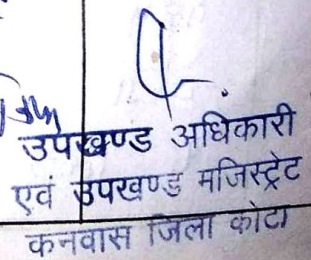 उपखण्ड अधिकारी
एवं उपखण्ड मजिस्ट्रेट
कनवास जिला कोटा